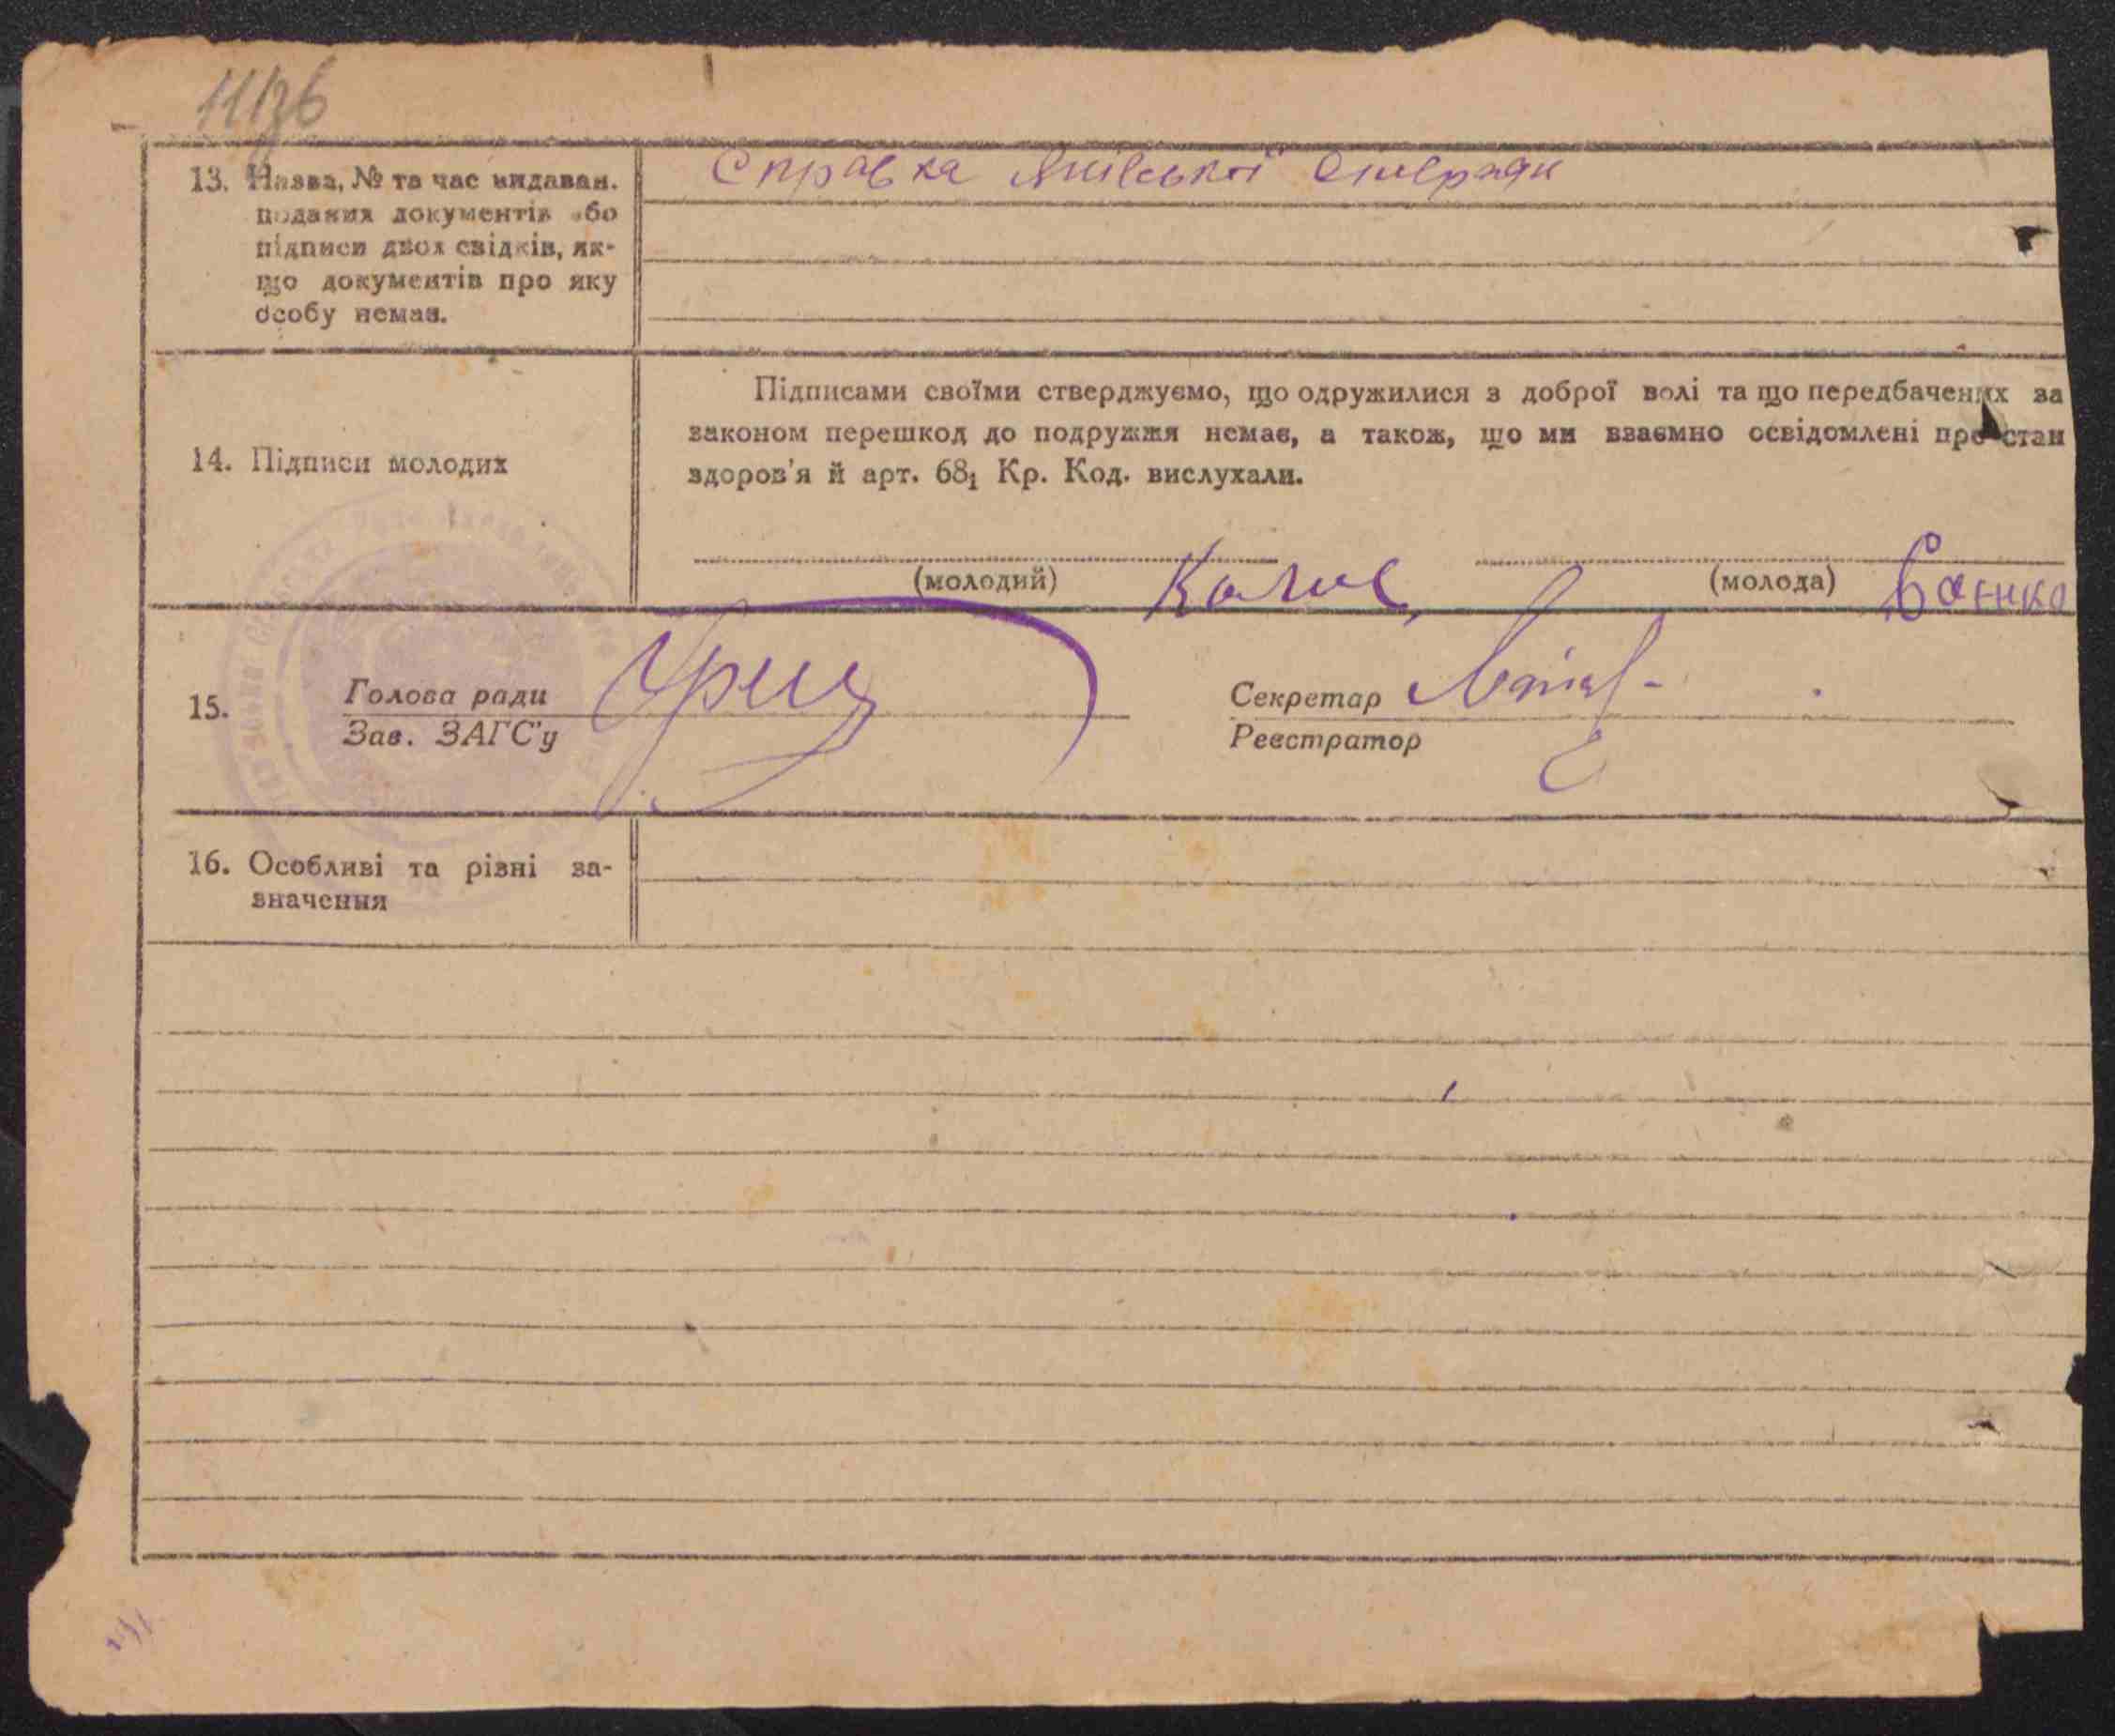 13. Назва, № та час видаван.
поданих документів або
підписи двох свідків, як-
що документів про яку
особу немає.
Справка сільради
14. Підписи молодих
Підписами своїми стверджуємо, що одружилися з доброї волі та що передбачених за
законом перешкод до подружжя немає, а також, що ми взаємно освідомлені про стан
здоров'я й арт. 68₁ Кр. Код. вислухали.
(молодий)
(молода)
15.
Голова ради
Зав. ЗАГС'у
Секретар
Реєстратор
16. Особливі та різні за-
значення